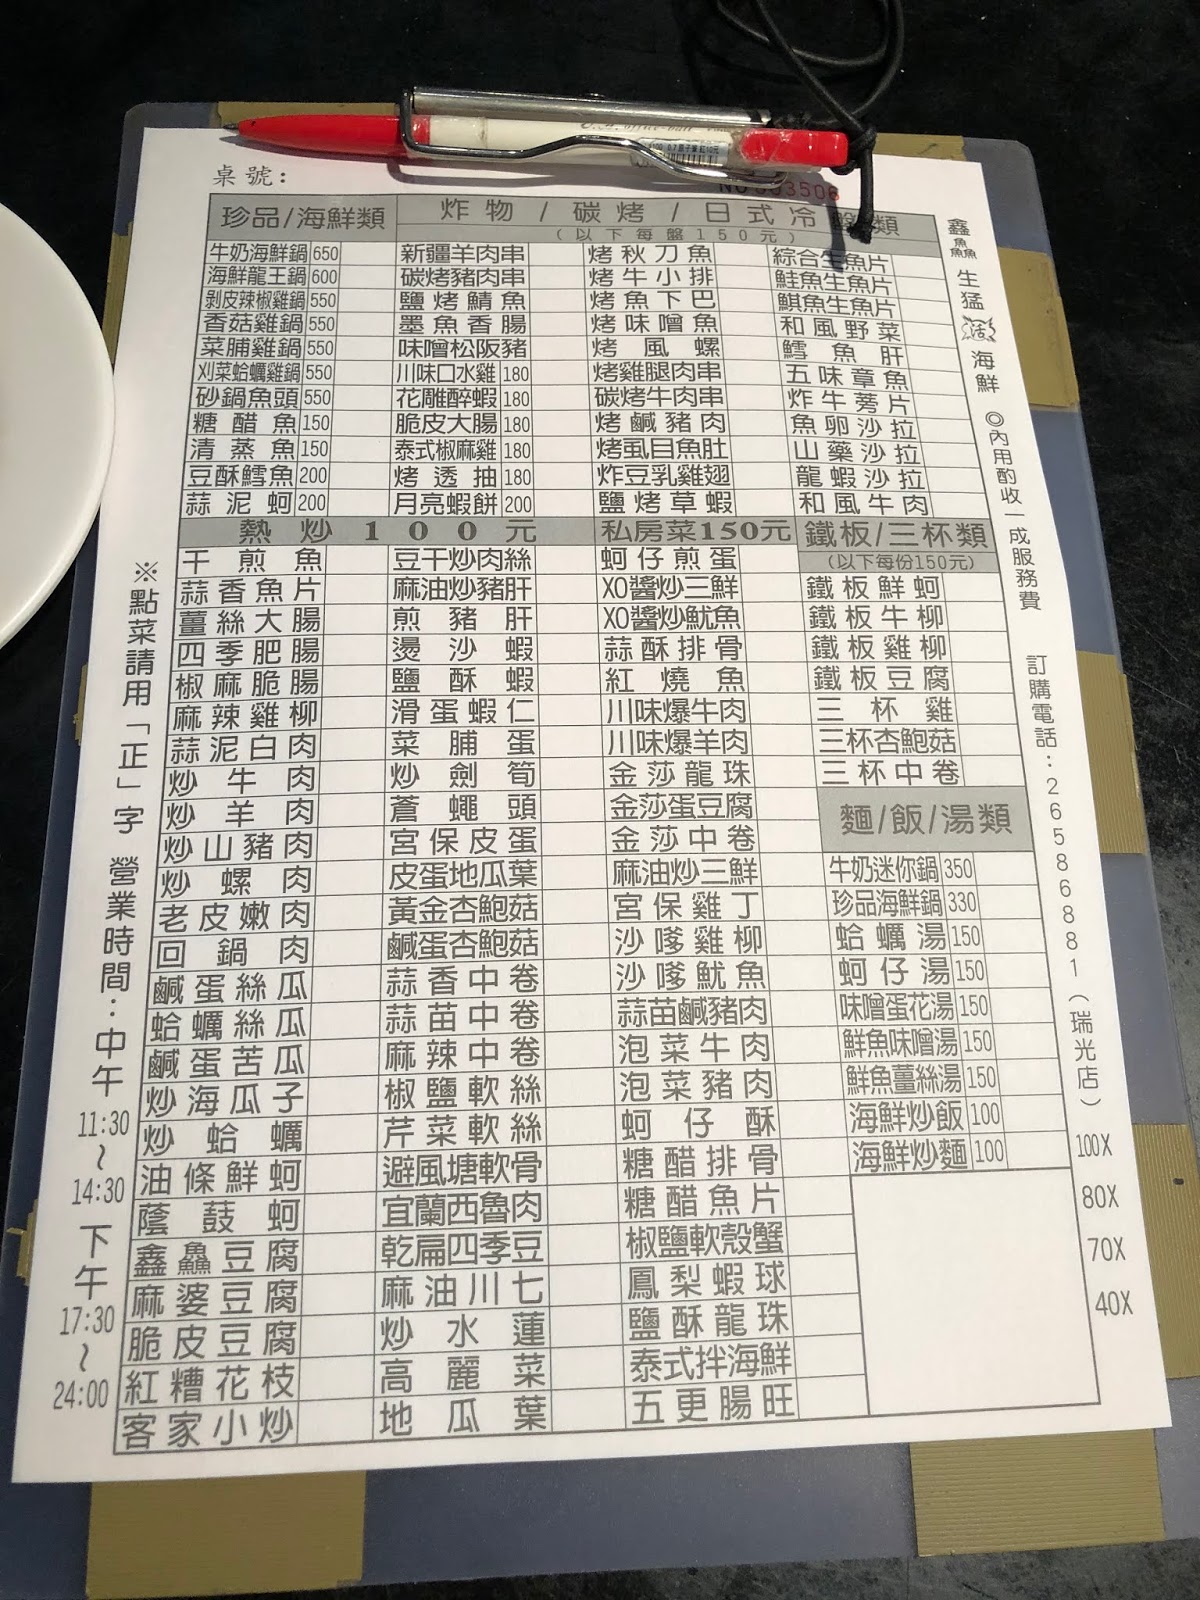 桌號：
珍品/海鮮類
牛奶海鮮鍋 650
海鮮龍王鍋 600
剝皮辣椒雞鍋 550
香菇雞鍋 550
菜脯雞鍋 550
刈菜蛤蠣雞鍋 550
砂鍋魚頭 550
糖醋魚 150
清蒸魚 150
豆酥鱈魚 200
蒜泥蚵 200
炸物/碳烤/日式冷盤類
(以下每盤150元)
新疆羊肉串
碳烤豬肉串
鹽烤鯖魚
墨魚香腸
味噌松阪豬
川味口水雞 180
花雕醉蝦 180
脆皮大腸 180
泰式椒麻雞 180
烤透抽 180
月亮蝦餅 200
烤秋刀魚
烤牛小排
烤魚下巴
烤味噌魚
烤風螺
烤雞腿肉串
碳烤牛肉串
烤鹹豬肉
烤虱目魚肚
炸豆乳雞翅
鹽烤草蝦
綜合生魚片
鮭魚生魚片
鯕魚生魚片
和風野菜
鱈魚肝
五味章魚
炸牛蒡片
魚卵沙拉
山藥沙拉
龍蝦沙拉
和風牛肉
熱炒100元
干煎魚
蒜香魚片
薑絲大腸
四季肥腸
椒麻脆腸
麻辣雞柳
蒜泥白肉
炒牛肉
炒羊肉
炒山豬肉
炒螺肉
老皮嫩肉
回鍋肉
鹹蛋絲瓜
蛤蠣絲瓜
鹹蛋苦瓜
炒海瓜子
炒蛤蠣
油條鮮蚵
蔭鼓蚵
鑫鱻豆腐
麻婆豆腐
脆皮豆腐
紅糟花枝
客家小炒
豆干炒肉絲
麻油炒豬肝
煎豬肝
燙沙蝦
鹽酥蝦
滑蛋蝦仁
菜脯蛋
炒劍筍
蒼蠅頭
宮保皮蛋
皮蛋地瓜葉
黃金杏鮑菇
鹹蛋杏鮑菇
蒜香中卷
蒜苗中卷
麻辣中卷
椒鹽軟絲
芹菜軟絲
避風塘軟骨
宜蘭西魯肉
乾扁四季豆
麻油川七
炒水蓮
高麗菜
地瓜葉
私房菜150元
蚵仔煎蛋
XO醬炒三鮮
XO醬炒魷魚
蒜酥排骨
紅燒魚
川味爆牛肉
川味爆羊肉
金莎龍珠
金莎蛋豆腐
金莎中卷
麻油炒三鮮
宮保雞丁
沙嗲雞柳
沙嗲魷魚
蒜苗鹹豬肉
泡菜牛肉
泡菜豬肉
蚵仔酥
糖醋排骨
糖醋魚片
椒鹽軟殼蟹
鳳梨蝦球
鹽酥龍珠
泰式拌海鮮
五更腸旺
鐵板/三杯類
(以下每份150元)
鐵板鮮蚵
鐵板牛柳
鐵板雞柳
鐵板豆腐
三杯雞
三杯杏鮑菇
三杯中卷
麵/飯/湯類
牛奶迷你鍋 350
珍品海鮮鍋 330
蛤蠣湯 150
蚵仔湯 150
味噌蛋花湯 150
鮮魚味噌湯 150
鮮魚薑絲湯 150
海鮮炒飯 100
海鮮炒麵 100
鑫鱻生猛活海鮮 ◎內用酌收一成服務費 訂購電話：26586881（瑞光店）
100X
80X
70X
40X
※點菜請用「正」字 營業時間：中午11:30~14:30 下午17:30~24:00